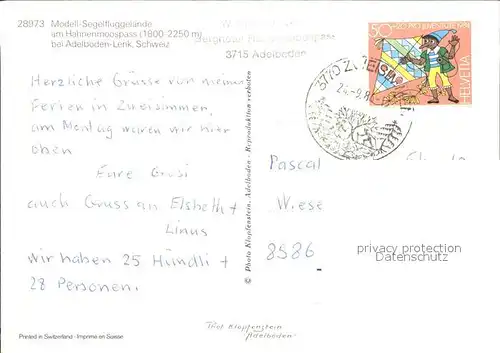 28973 Modell-Segelfluggelände
am Hahnenmoospass (1800-2250 m)
bei Adelboden-Lenk, Schweiz
3715 Adelboden
50+20 PRO JUVENTUTE 1984
HELVETIA
3770 ZWEISIMMEN
Herzliche Grüsse von meinen
Ferien in Zweisimmen,
am Montag waren wir hier
oben
Eure Grosi
auch Gruss an Elsbeth +
Linus
wir haben 25 Hündli +
28 Personen.
© Photo Klopfenstein, Adelboden - Reproduktion verboten
Pascal
Wiese
8586
privacy protection
Datenschutz
Printed in Switzerland - Imprimé en Suisse
Phot Klopfenstein
Adelboden